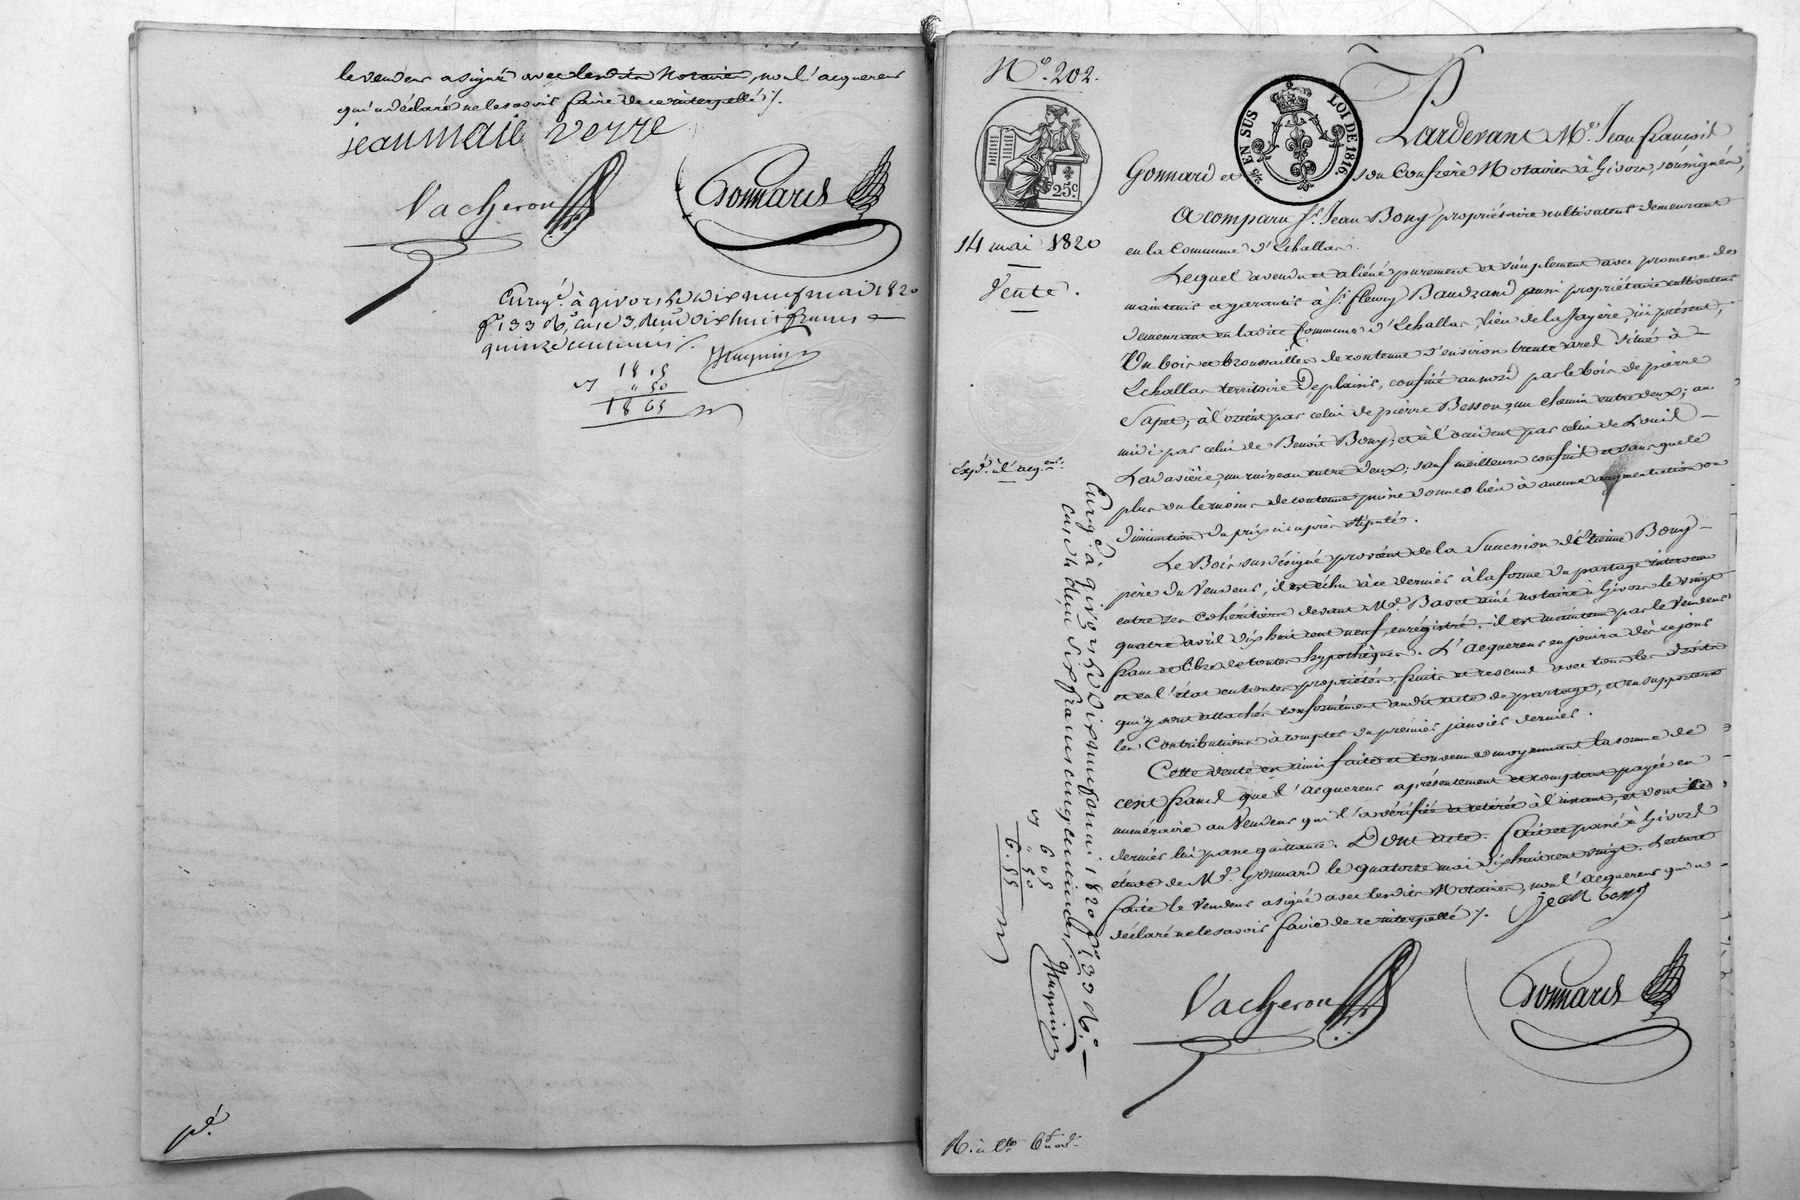 le vendeur a signé avec lesdits Notaires, non l'acquereur
qui a déclaré ne le savoir faire de ce interpellé ./.
jean marie veyre
Vacheron
Gonnard
Enregé à givors le dix neuf mai 1820
fo 133 Ro, case 3, reçu dix huit francs
quinze centimes ./.
18.15
" 50
18 65
pé.
No. 202.
25c
EN SUS
LOI DE 1816
14 mai 1820
Vente.
Expé. à l'acqeur.
Pardevant Me. Jean François
Gonnard et son Confrère Notaires à Givors, soussignés,
A comparu Sr. Jean Bony propriétaire cultivateur demeurant
en la commune d'Echallas.
Lequel a vendu et aliéné purement et simplement avec promesse de
maintenir et garantir à Sr. fleury Baudrand aussi propriétaire cultivateur
demeurant en ladite Commune d'Echallas, lieu de la Jayère, ici présent,
Un bois et broussailles de contenue d'environ trente ares situé à
Echallas territoire De plainis, confiné au nord par le bois de pierre
Sapet; à l'orient par celui de pierre Besson, un chemin entre deux; au
midi par celui de Benoît Bony; et à l'occident par celui de Louis
Lavasière, un ruisseau entre deux; sauf meilleurs confins et sans que le
plus ou le moins de contenue puisse donner lieu à aucune augmentation ou
diminution du prix ci après stipulé.
Le Bois susdésigné provient de la Succession d'Etienne Bony
père du Vendeur, il est échu à ce dernier à la forme du partage intervenu
entre ses cohéritiers devant Me. Bavet ainé notaire à Givors le vingt
quatre avril dix huit cent neuf, enregistré. il est maintenu par le Vendeur
franc et libre de toutes hypothèques. L'acquereur en jouira dès ce jour
et en l'état en toutes propriétés, fruits et revenus avec tous les droits
qui y sont attachés conformément audit acte de partage, et en supportera
les Contributions à compter du premier janvier dernier.
Cette vente est ainsi faite et convenue moyennant la somme de
cent francs que l'acquereur a présentement et comptant payée en
numéraire au Vendeur qui l'a vérifiée et retirée à l'instant, et dont ce
dernier lui passe quittance. Dont acte. fait et passé à Givors
étude de Me. Gonnard le quatorze mai dix huit cent vingt. Lecture
faite le Vendeur a signé avec lesdits Notaires, non l'acquereur qui a
déclaré ne le savoir faire de ce interpellé ./.
jean bony
Vacheron
Gonnard
Enregé à givors le dix neuf mai 1820 fo 133 Ro,
case 4, reçu six francs cinq centimes
6 05
" 50
6.55